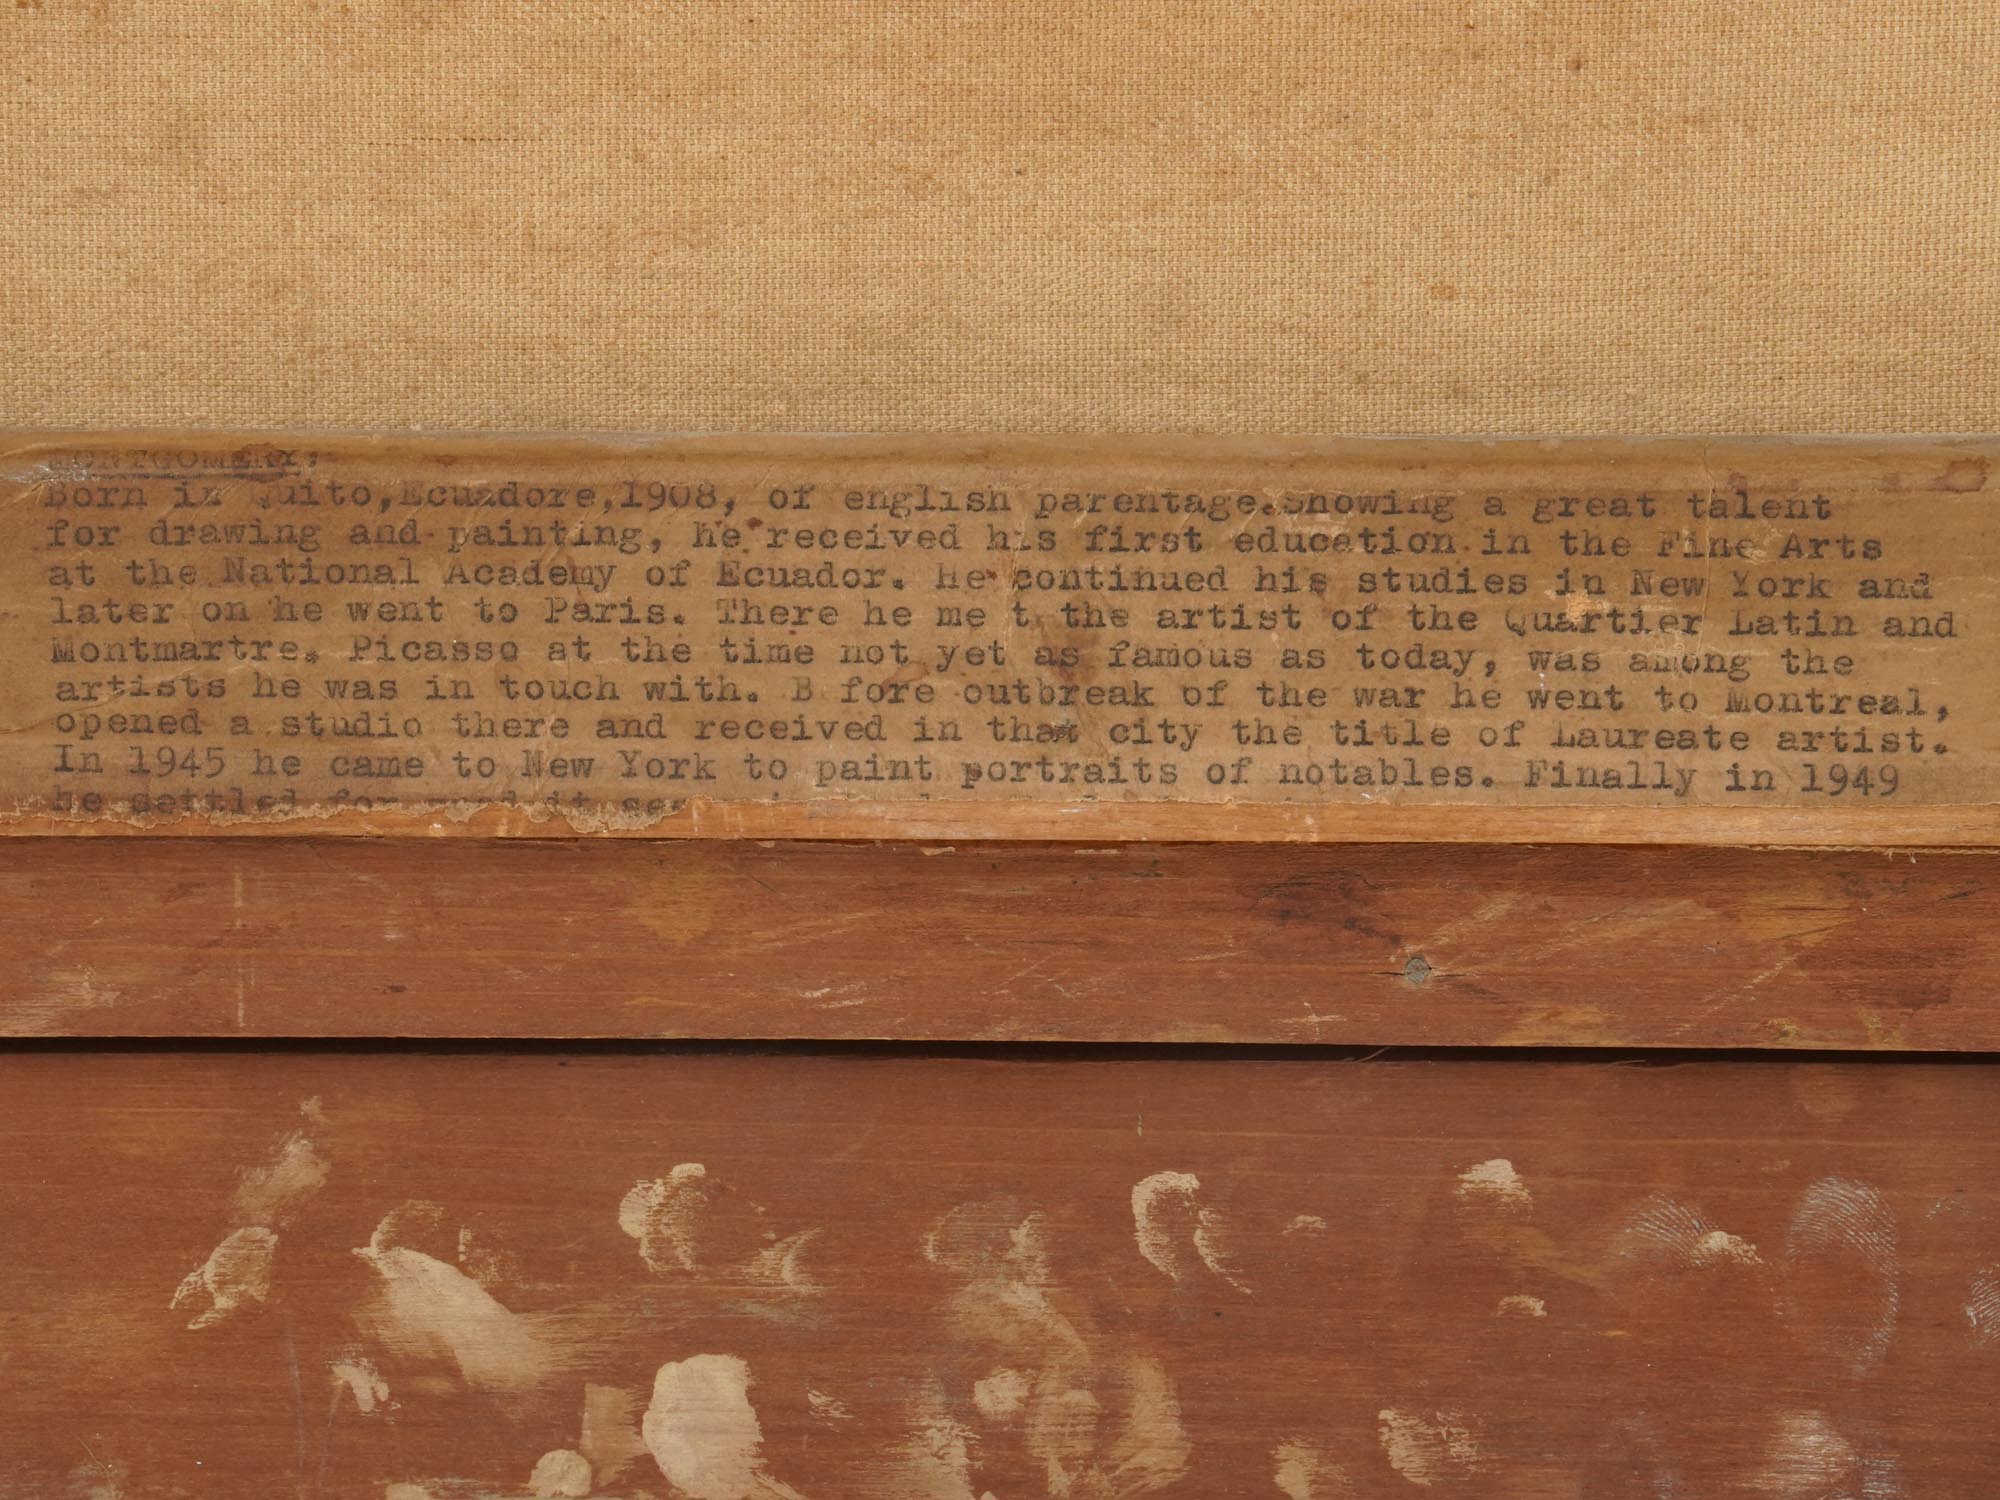 MONTGOMERY:
Born in Quito,Ecuadore,1908, of english parentage.Showing a great talent
for drawing and painting, he received his first education in the Fine Arts
at the National Academy of Ecuador. He continued his studies in New York and
later on he went to Paris. There he me t the artist of the Quartier Latin and
Montmartre. Picasso at the time not yet as famous as today, was among the
artists he was in touch with. B fore outbreak of the war he went to Montreal,
opened a studio there and received in that city the title of Laureate artist.
In 1945 he came to New York to paint portraits of notables. Finally in 1949
he settled for good it